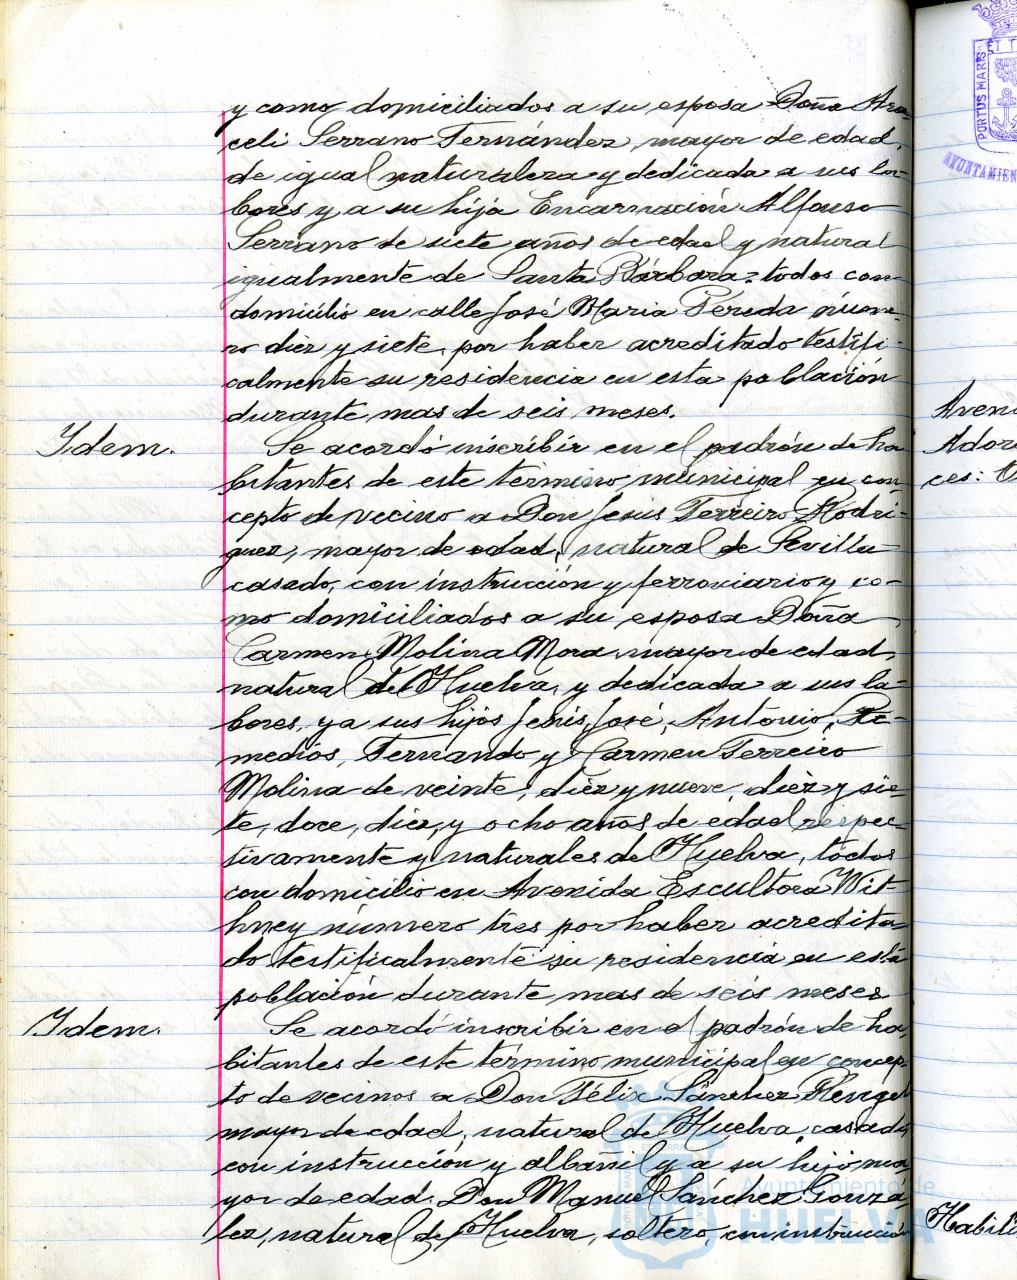 y como domiciliados a su esposa Doña Ara-
celi Serrano Fernández, mayor de edad,
de igual naturaleza y dedicada a sus la-
bores y a su hija Encarnación Alfonso
Serrano de siete años de edad y natural
igualmente de Santa Bárbara, todos con
domicilio en calle José Maria Pereda núme-
ro diez y siete, por haber acreditado testifi-
calmente su residencia en esta población
durante mas de seis meses.
Ydem.
Se acordó inscribir en el padrón de ha-
bitantes de este término municipal en con-
cepto de vecino a Don Jesús Ferreiro Rodri-
guez, mayor de edad, natural de Sevilla
casado, con instrucción y ferroviario y co-
mo domiciliados a su esposa Doña
Carmen Molina Mora, mayor de edad,
natural de Huelva, y dedicada a sus la-
bores, y a sus hijos Jesús, José, Antonio, Re-
medios, Fernando y Carmen Ferreiro
Molina de veinte, diez y nueve, diez y sie-
te, doce, diez, y ocho años de edad respec-
tivamente y naturales de Huelva, todos
con domicilio en Avenida Escultora Wit-
hney número tres por haber acredita-
do testificalmente su residencia en esta
población durante mas de seis meses
Ydem.
Se acordó inscribir en el padrón de ha-
bitantes de este término municipal en concep-
to de vecinos a Don Félix Sánchez
mayor de edad, natural de Huelva, casado,
con instrucción y albañil y a su hijo ma-
yor de edad Don Manuel Sánchez Gonzá-
lez, natural de Huelva, soltero, con instrucción
PORTUS MARIS
AYUNTAMIEN
Aven
Ador
ces:
Habili
Ayuntamiento de
HUELVA